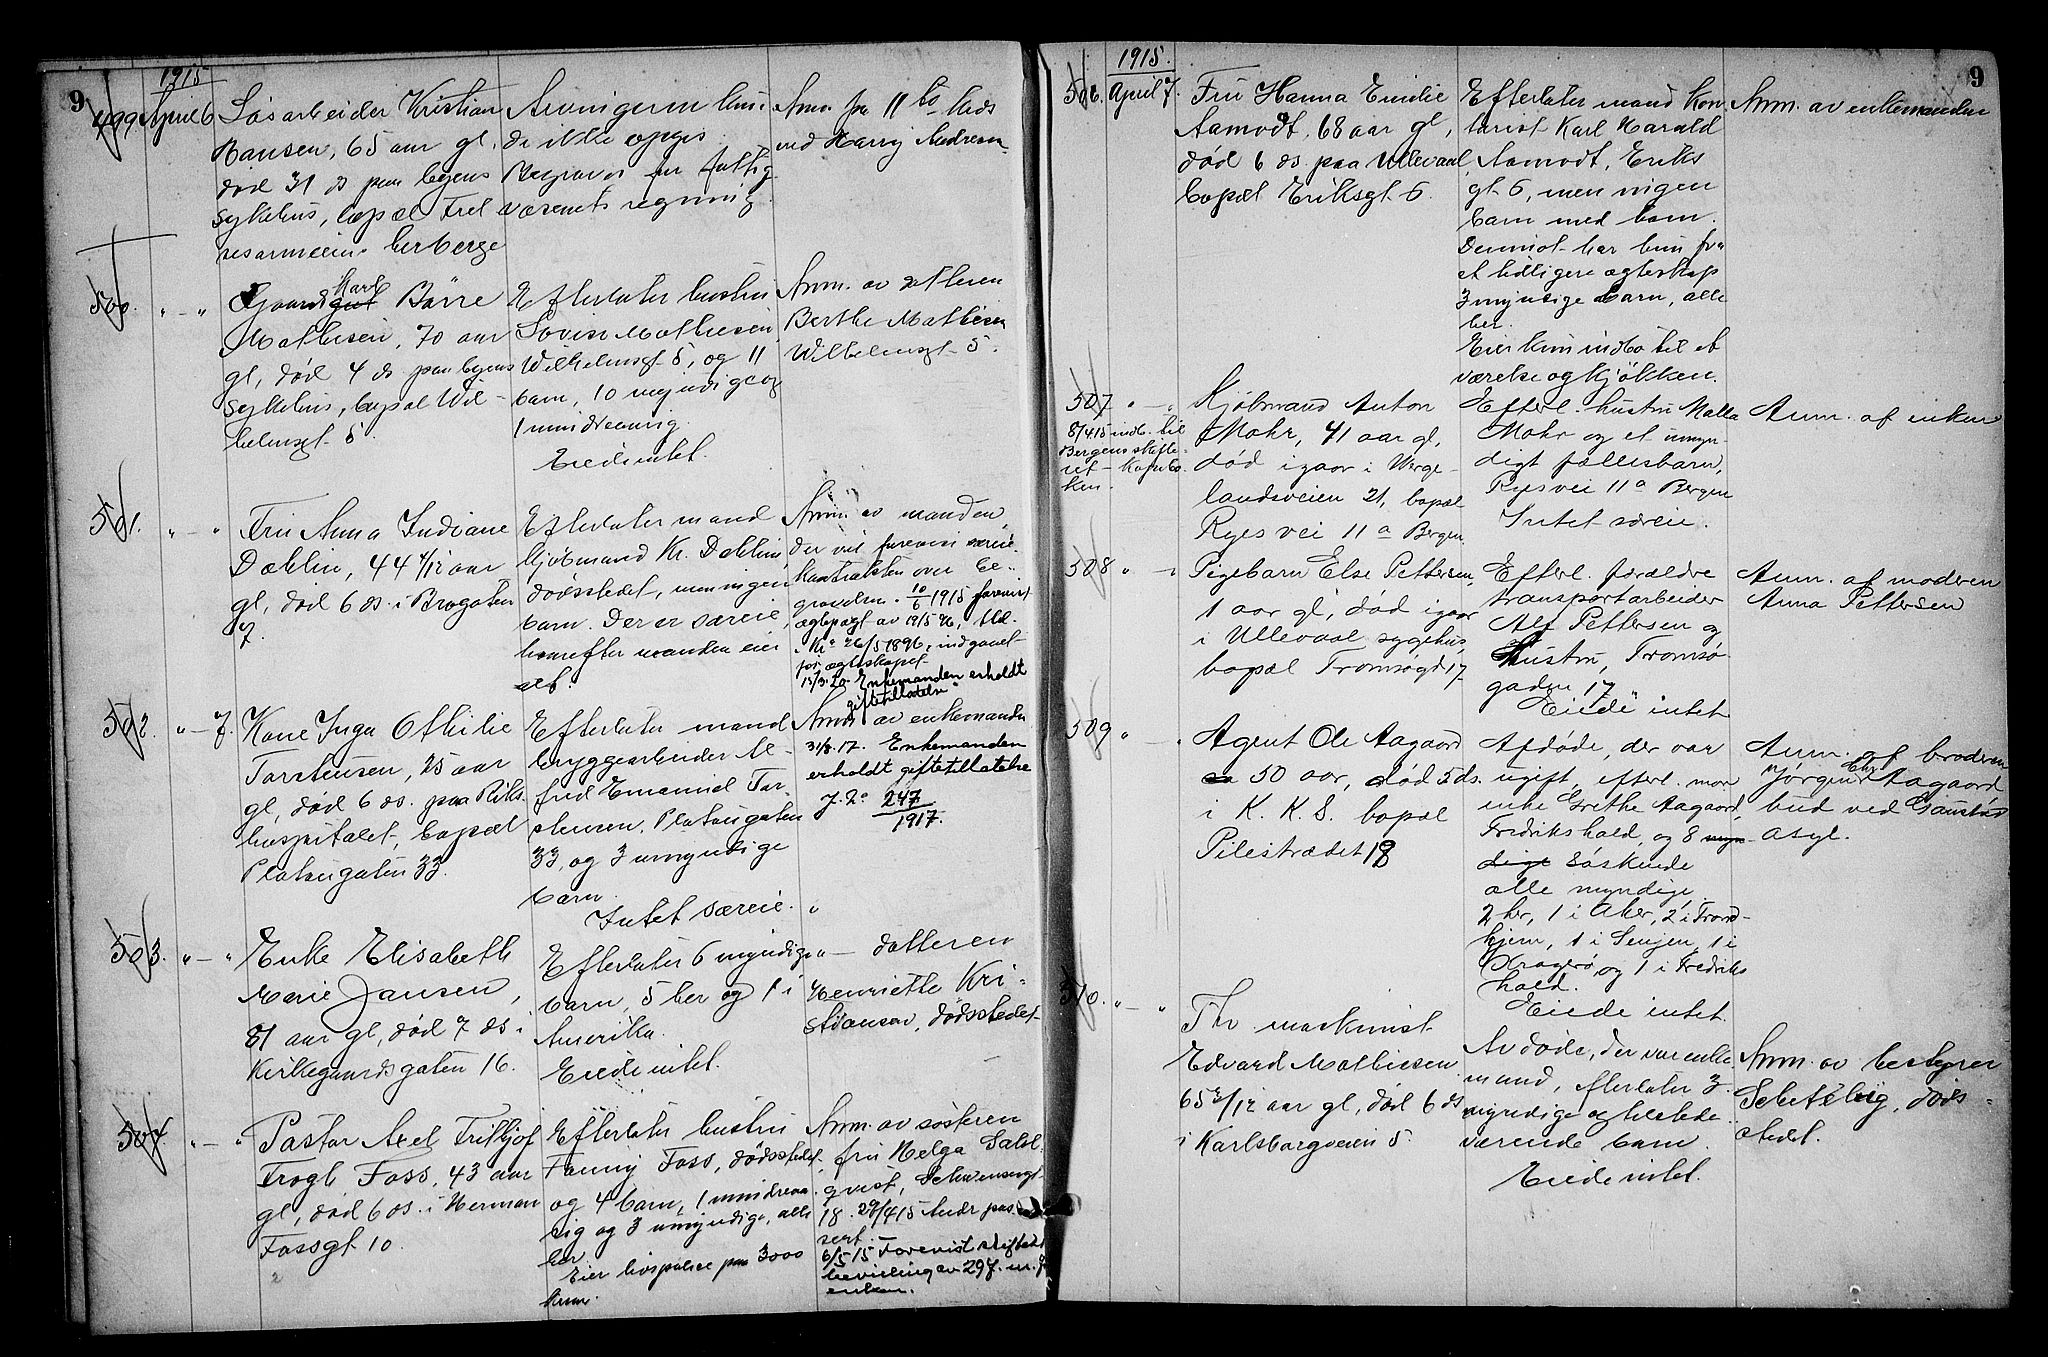 1915
9
499 April 6 Løsarbeider Kristian
Hansen, 65 aar gl,
død 31 ds paa byens
sykehus, bopæl Frel
sesarmeens herberge
Arvingerne kun
de ikke opgis
Begraves for fattig
væsenets regning.
Anm. fra 11te kreds
ved Harry Andresen
500. " - " Karl Børre
Mathisen, 70 aar
gl, død 4 ds paa byens
sykehus, bopæl Wil-
helmsgt 5.
Efterlater hustru
Lovise Mathiesen,
Wilhelmsgt 5, og 11
barn, 10 myndige og
1 mindreaarig.
Eiet intet.
Anm. av datteren
Berthe Mathisen
Wilhelmsgt 5.
501. " - " Fru Anna Indiane
Dæhlin, 44 4/12 aar
gl, død 6 ds. i Brogaten
7.
Efterlater mand
kjøbmand Kr. Dæhlin
dødsstedet, men ingen
barn. Der er særeie,
hvorefter manden eier
alt.
Anm. av manden,
der vil forevise særeie-
kontrakten over be-
gravelsen. 10/6 1915 forevist
ægtepagt av 19/5 96,
Kr.a 26/5 1896, indgaaet
før ægteskapet
Enkemanden erholdt
giftetillatelse
502. " - 7. Kone Inga Othilie
Torstensen, 25 aar
gl, død 6 ds. paa Riks-
hospitalet, bopæl
Platougaten 33.
Efterlater mand
bryggearbeider Al-
fred Emanuel Tor-
stensen, Platougaten
33, og 3 umyndige
barn.
Intet særeie.
Anm. av enkemanden
31/8.17. Enkemanden
erholdt giftetillatelse
J. No 247/1917.
503. " - " Enke Elisabeth
Marie Jansen,
81 aar gl, død 7 ds i
Kirkegaardsgaten 16.
Efterlater 6 myndige
barn, 5 her og 1 i
Amerika.
Eiet intet.
" - datteren
Henriette Kri-
stiansen, dødsstedet
504. " - " Pastor Axel Frithjof
Trogh Foss, 43 aar
gl, død 6 ds. i Herman
Fossgt 10.
Efterlater hustru
Fanny Foss, dødsstedet,
og 4 barn, 1 mindreaa-
rig og 3 umyndige, alle
her.
Eier livspolise paa 3000
kroner.
Anm. av søsteren
fru Helga Dahl-
qvist, Schwensensgt
18. 29/4 15 Andr pas-
sert.
6/5 15 Forevist skifte
bevilling av 29 f. m. f
enken.
1915.
9
506. April 7. Fru Hanna Emilie
Aamodt, 68 aar gl,
død 6 ds. paa Ullevaal
bopæl Eriksgt 6.
Efterlater mand kon
torist Karl Harald
Aamodt, Eriks
gt 6, men ingen
barn med ham.
Derimot har hun fra
et tidligere ægteskap
3 myndige barn, alle
her.
Eier kun indbo til et
værelse og kjøkken.
Anm. av enkemanden
507 " - " Kjøbmand Anton
Mohr, 41 aar gl,
død igaar i Werge-
landsveien 21, bopæl
Ryes vei 11a Bergen.
8/4 15 indb. til
Bergens skifte-
ret - Kopibo-
ken.
Efterl. hustru Malla
Mohr og et umyn-
digt fællesbarn,
Ryes vei 11a Bergen
Intet særeie.
Anm. af enken
508 " - " Pigebarn Else Pettersen,
1 aar gl, død igaar
i Ullevaal sygehus,
bopæl Tromsøgd 17
Efterl. forældre
transportarbeider
Alf Pettersen og
Hustru, Tromsø-
gaden 17
Eiede intet
Anm. af moderen
Anna Pettersen
509 " - " Agent Ole Aagaard
50 aar, død 5 ds.
i K. K. S. bopæl
Pilestrædet 18
Afdøde, der var
ugift, efterl. mor
enke Grethe Aagaard,
Fredrikshald, og 8 myn-
dige søskende
alle myndige,
2 her, 1 i Aker, 2 i Trond-
hjem, 1 i Senjen, 1 i
Kragerø og 1 i Fredriks
hald.
Eiede intet.
Anm. af broderen
Jørgen Chr. Aagaard
bud ved Gaustad
Asyl.
510. " - " Fhv maskinist
Edvard Mathiesen
65 2/12 aar gl, død 6 ds
i Karlsborgveien 5.
Avdøde, der var enke
mand, efterlater 3
myndige og tilstede-
værende barn.
Eiede intet.
Anm. av bestyrer
Schetelig, døds-
stedet.